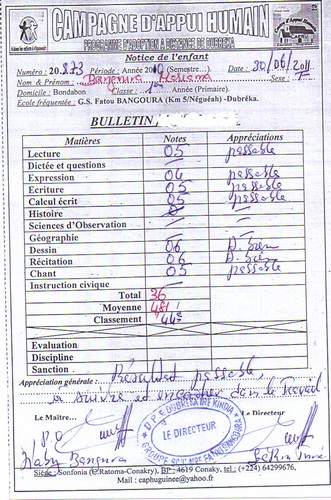 CAMPAGNE D'APPUI HUMAIN
PROGRAMME D'ADOPTION A DISTANCE DE DUBREKA
Notice de l'enfant
Numéro : 20.873 Période : Année 2010 (Semestre…) Date : 20/06/2011
Nom & Prénom : Bangoura Sexe : F
Domicile : Bondabon Classe : 1ère Année (Primaire).
Ecole fréquentée : G.S. Fatou BANGOURA (Km 5/Néguéah) -Dubréka.
BULLETIN
Matières Notes Appréciations
Lecture 05 passable
Dictée et questions
Expression 06 passable
Ecriture 05 passable
Calcul écrit 05 passable
Histoire
Sciences d'Observation
Géographie
Dessin 06 A. Bien
Récitation 06 A. Bien
Chant 05 passable
Instruction civique
Total 36
Moyenne
Classement 44è
Evaluation
Discipline
Sanction
Appréciation générale : Résultat passable,
à suivre et encadrer dans le travail
Le Maître... Le Directeur
P.O
DPE DUBREKA
LE DIRECTEUR
Naby Bangoura
Siège : Sonfonia (C/Ratoma-Conakry), BP : 4619 Conaky, tel : (+224) 64299676,
Mail : caphuguinee@yahoo.fr